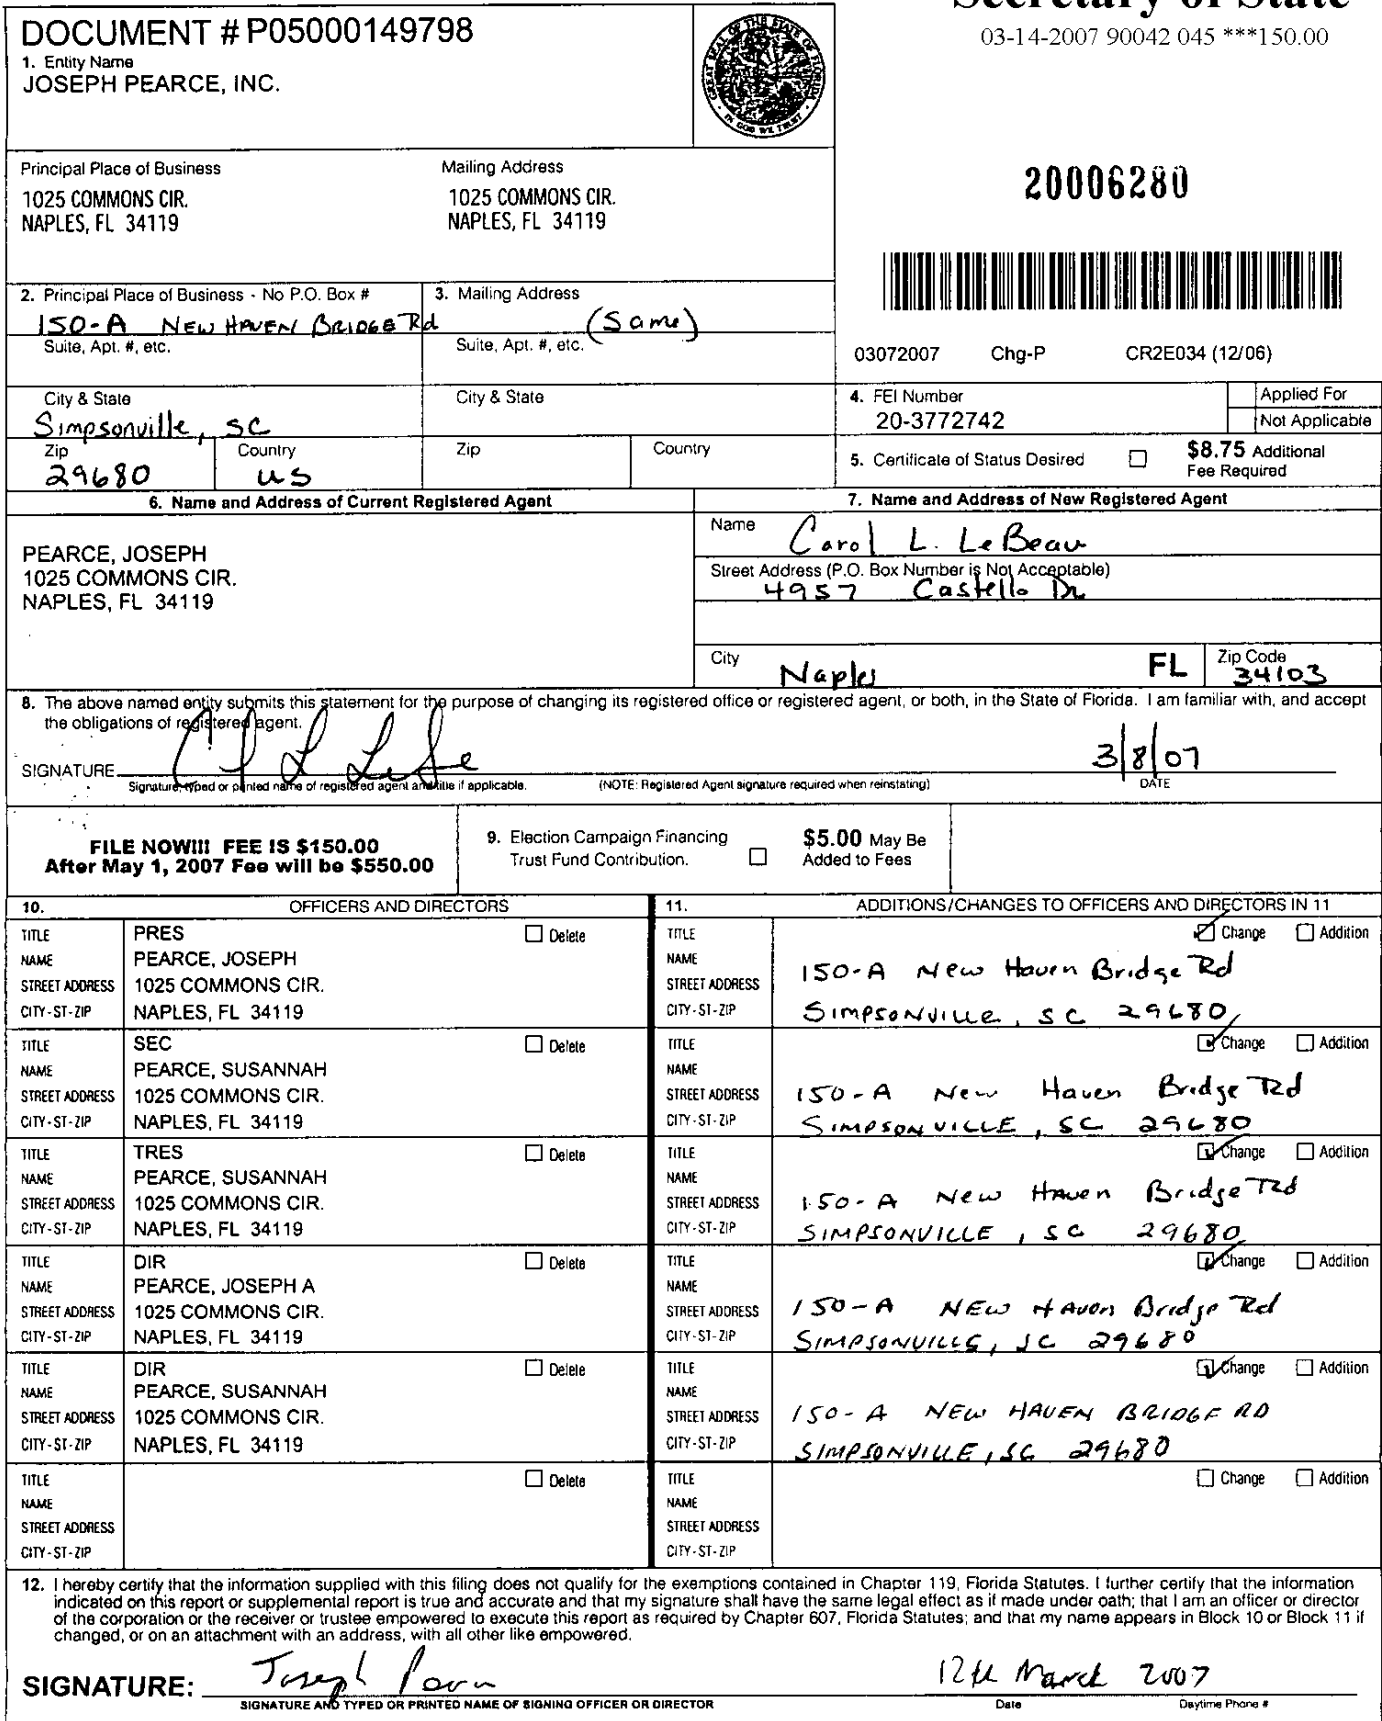 Secretary of State
03-14-2007 90042 045 ***150.00
DOCUMENT # P05000149798
1. Entity Name
JOSEPH PEARCE, INC.
GREAT SEAL OF THE STATE OF FLORIDA
IN GOD WE TRUST
Principal Place of Business
1025 COMMONS CIR.
NAPLES, FL 34119
Mailing Address
1025 COMMONS CIR.
NAPLES, FL 34119
20006280
2. Principal Place of Business - No P.O. Box #
150-A NEW HAVEN BRIDGE Rd
Suite, Apt. #, etc.
3. Mailing Address
(Same)
Suite, Apt. #, etc.
03072007 Chg-P CR2E034 (12/06)
City & State
Simpsonville, SC
City & State
Zip
29680
Country
US
Zip
Country
4. FEI Number
20-3772742
Applied For
Not Applicable
5. Certificate of Status Desired
$8.75 Additional
Fee Required
6. Name and Address of Current Registered Agent
PEARCE, JOSEPH
1025 COMMONS CIR.
NAPLES, FL 34119
7. Name and Address of New Registered Agent
Name
Carol L. LeBeau
Street Address (P.O. Box Number is Not Acceptable)
4957 Castello Dr
City
Naples
FL
Zip Code
34103
8. The above named entity submits this statement for the purpose of changing its registered office or registered agent, or both, in the State of Florida. I am familiar with, and accept
the obligations of registered agent.
SIGNATURE
3/8/07
Signature, typed or printed name of registered agent and title if applicable.
(NOTE: Registered Agent signature required when reinstating)
DATE
FILE NOW!!! FEE IS $150.00
After May 1, 2007 Fee will be $550.00
9. Election Campaign Financing
Trust Fund Contribution.
$5.00 May Be
Added to Fees
10. OFFICERS AND DIRECTORS
11. ADDITIONS/CHANGES TO OFFICERS AND DIRECTORS IN 11
TITLE PRES Delete
NAME PEARCE, JOSEPH
STREET ADDRESS 1025 COMMONS CIR.
CITY-ST-ZIP NAPLES, FL 34119
TITLE Change Addition
NAME
STREET ADDRESS 150-A New Haven Bridge Rd
CITY-ST-ZIP SIMPSONVILLE, SC 29680
TITLE SEC Delete
NAME PEARCE, SUSANNAH
STREET ADDRESS 1025 COMMONS CIR.
CITY-ST-ZIP NAPLES, FL 34119
TITLE Change Addition
NAME
STREET ADDRESS 150-A New Haven Bridge Rd
CITY-ST-ZIP SIMPSONVILLE, SC 29680
TITLE TRES Delete
NAME PEARCE, SUSANNAH
STREET ADDRESS 1025 COMMONS CIR.
CITY-ST-ZIP NAPLES, FL 34119
TITLE Change Addition
NAME
STREET ADDRESS 150-A New Haven Bridge Rd
CITY-ST-ZIP SIMPSONVILLE, SC 29680
TITLE DIR Delete
NAME PEARCE, JOSEPH A
STREET ADDRESS 1025 COMMONS CIR.
CITY-ST-ZIP NAPLES, FL 34119
TITLE Change Addition
NAME
STREET ADDRESS 150-A NEW Haven Bridge Rd
CITY-ST-ZIP SIMPSONVILLE, SC 29680
TITLE DIR Delete
NAME PEARCE, SUSANNAH
STREET ADDRESS 1025 COMMONS CIR.
CITY-ST-ZIP NAPLES, FL 34119
TITLE Change Addition
NAME
STREET ADDRESS 150-A NEW HAVEN BRIDGE RD
CITY-ST-ZIP SIMPSONVILLE, SC 29680
TITLE Delete
NAME
STREET ADDRESS
CITY-ST-ZIP
TITLE Change Addition
NAME
STREET ADDRESS
CITY-ST-ZIP
12. I hereby certify that the information supplied with this filing does not qualify for the exemptions contained in Chapter 119, Florida Statutes. I further certify that the information
indicated on this report or supplemental report is true and accurate and that my signature shall have the same legal effect as if made under oath; that I am an officer or director
of the corporation or the receiver or trustee empowered to execute this report as required by Chapter 607, Florida Statutes; and that my name appears in Block 10 or Block 11 if
changed, or on an attachment with an address, with all other like empowered.
SIGNATURE: Joseph 12th March 2007
SIGNATURE AND TYPED OR PRINTED NAME OF SIGNING OFFICER OR DIRECTOR
Date
Daytime Phone #